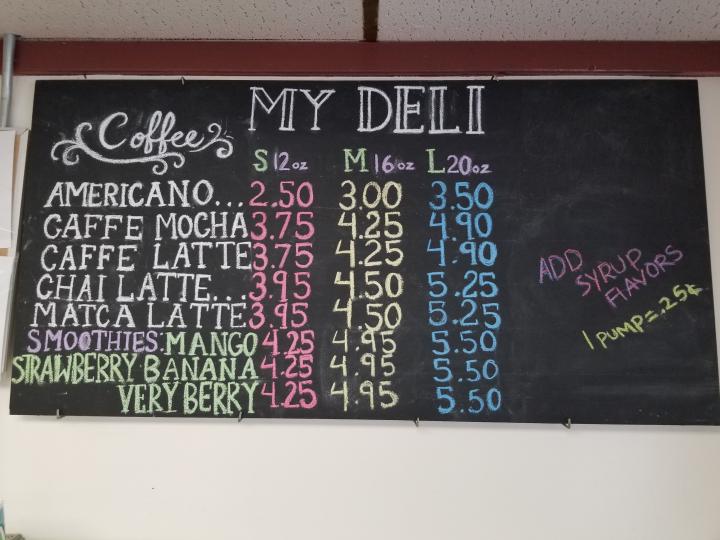 MY DELI
Coffee
S 12oz M 16oz L 20oz
AMERICANO... 2.50 3.00 3.50
CAFFE MOCHA 3.75 4.25 4.90
CAFFE LATTE 3.75 4.25 4.90
CHAI LATTE... 3.95 4.50 5.25
MATCA LATTE 3.95 4.50 5.25
SMOOTHIES: MANGO 4.25 4.95 5.50
STRAWBERRY BANANA 4.25 4.95 5.50
VERY BERRY 4.25 4.95 5.50
ADD SYRUP
FLAVORS
1 PUMP = .25¢